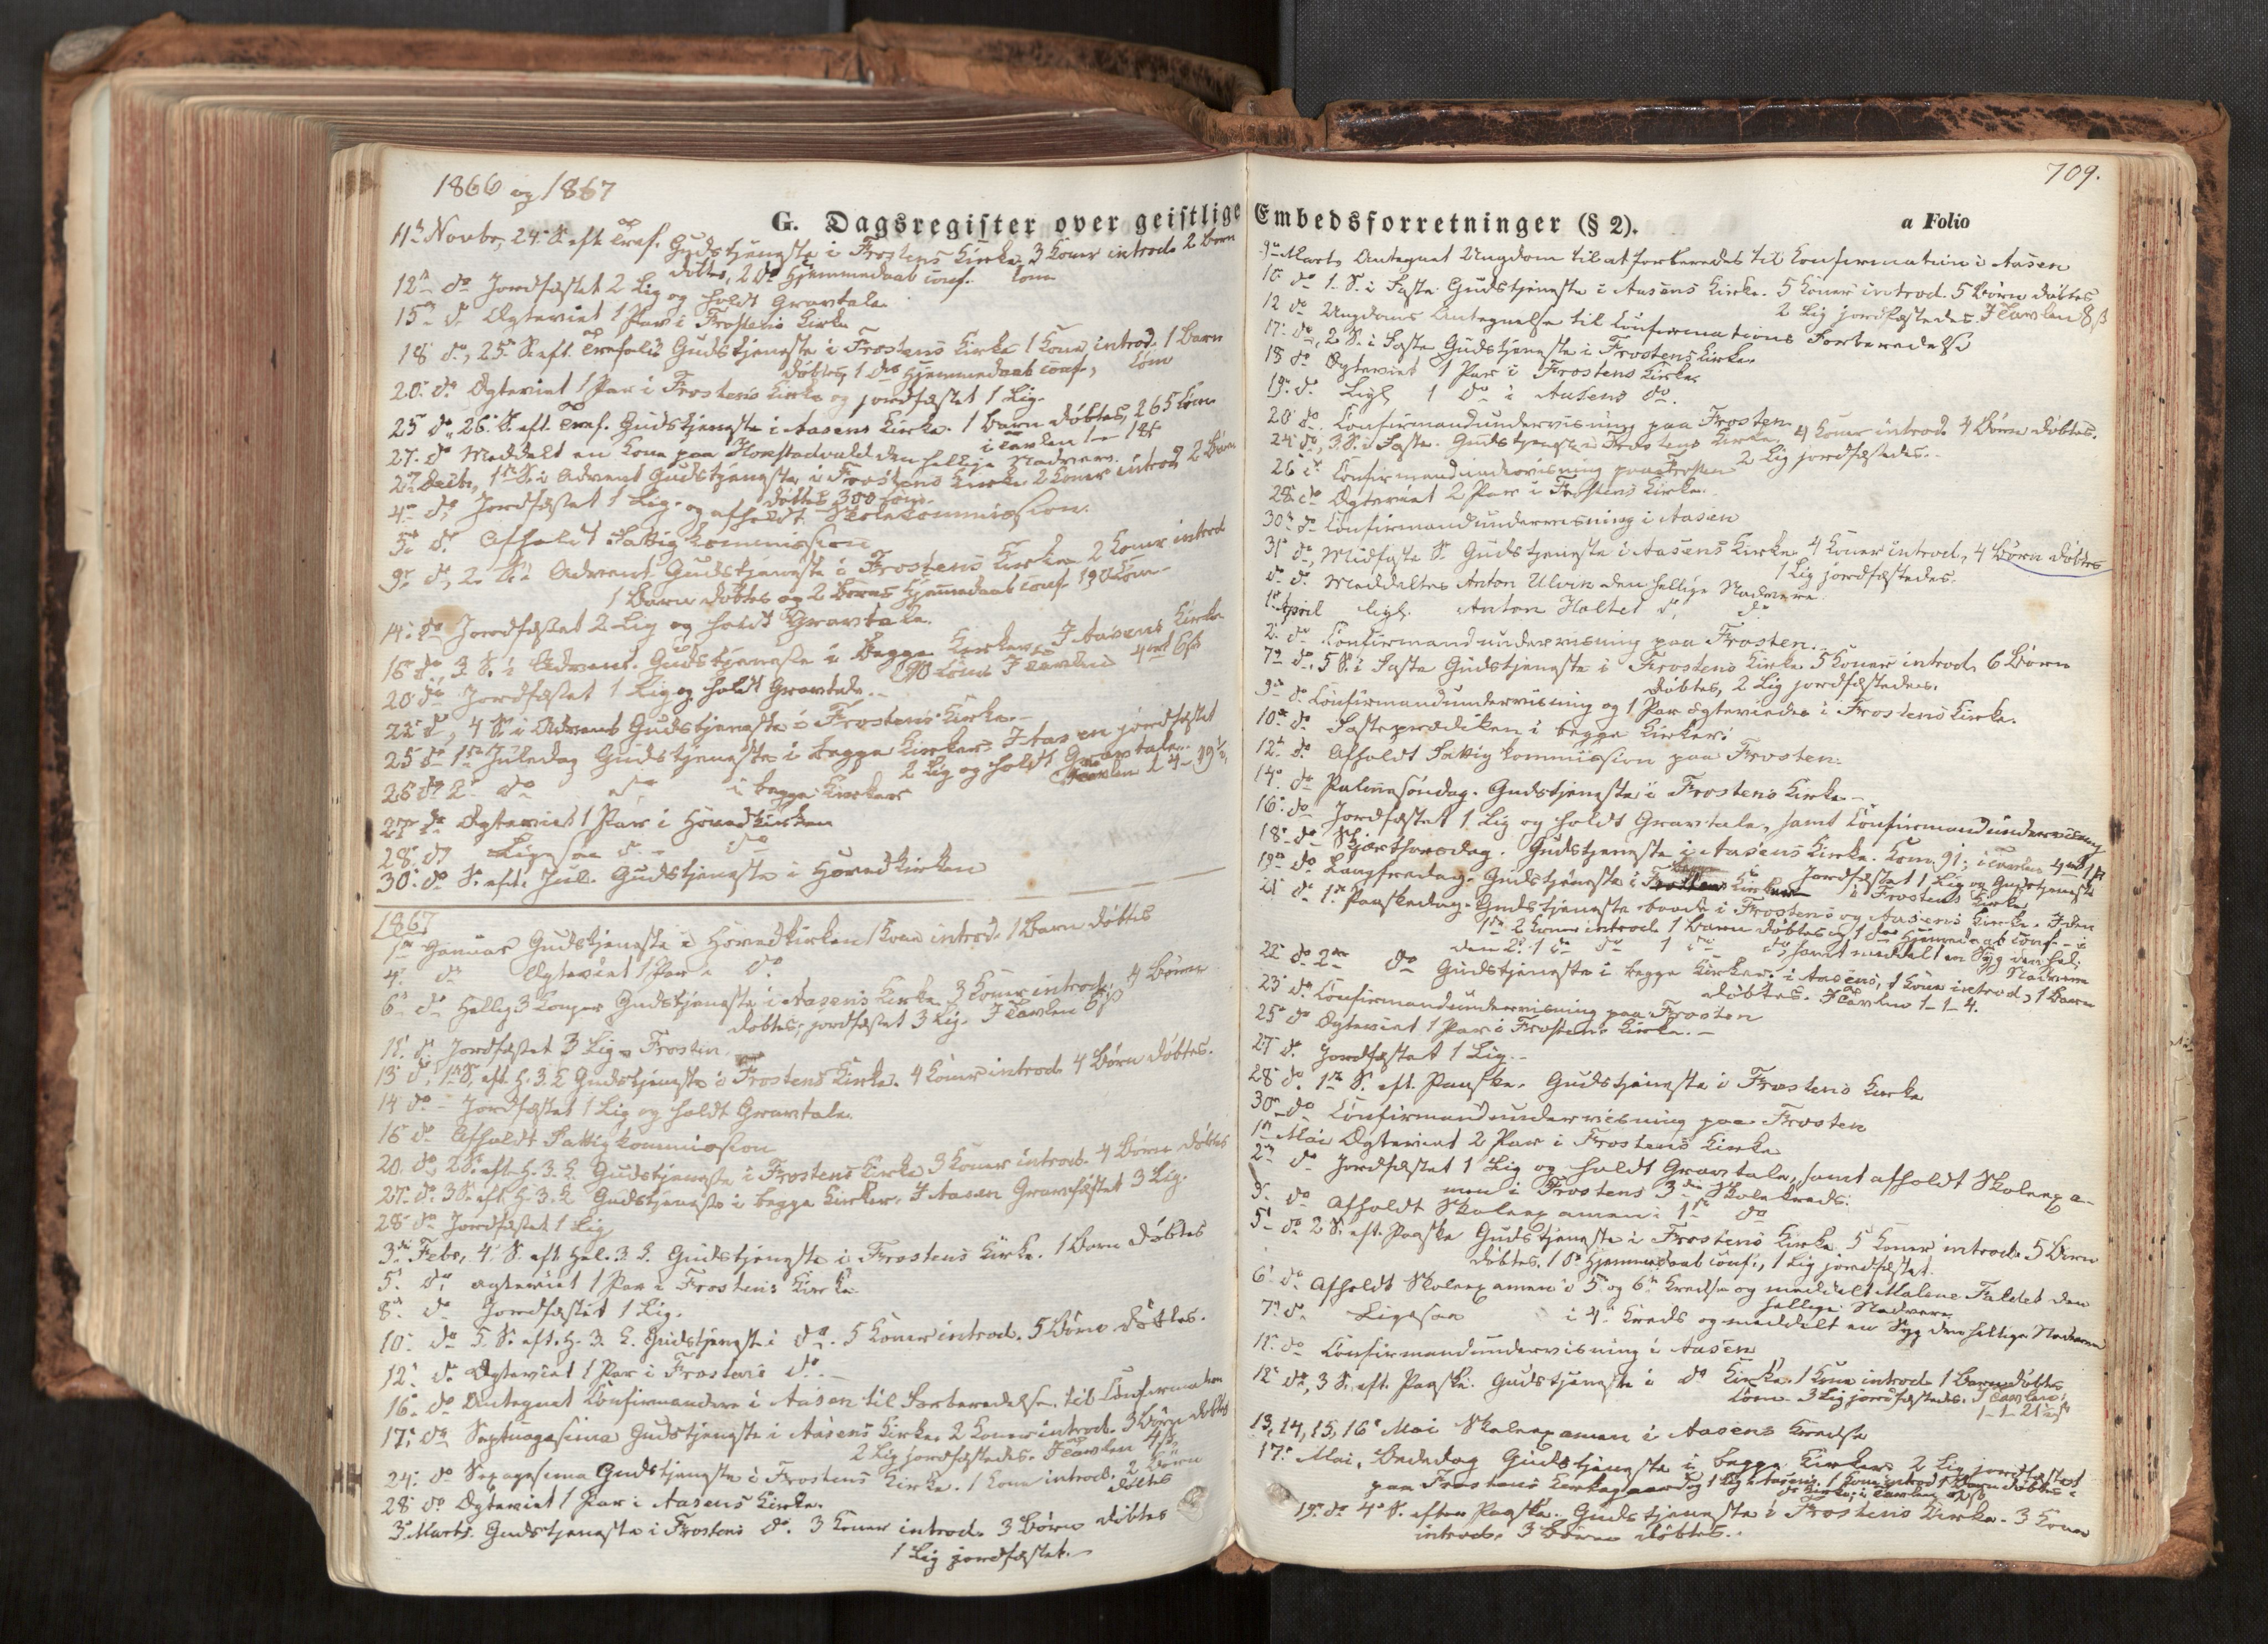 1866 og 1867
G. Dagsregister over geistlige
11te Novbr, 24. S. eft. Tref. Gudstjeneste i Frostens Kirke, 3 Koner introd. 2 Børn
døbtes, 2 do Hjemmedaab conf. Com
12te do Jordfæstet 2 Lig og holdt Gravtale
15de do Ægteviet 1 Par i Frostens Kirke
18 do, 25de S. eft. Trefoldis Gudstjeneste i Frostens Kirke 1 Kone introd. 1 Barn
døbtes, 1 do Hjemmedaab conf, Com
20. do Ægteviet 1 Par i Frostens Kirke og jordfæstet 1 Lig.
25 do 26. S. eft. Tref. Gudstjeneste i Aasens Kirke. 1 Barn døbtes, 265 Com.
i Tavlen
27. do Meddelt en Kone paa Hokstadvald den hellige Nadvere.
2de Decbr, 1ste S. i Advent Gudstjeneste i Frostens Kirke 2 Koner introd 2 Børn
døbtes 300 Com.
4de do Jordfæstet 1 Lig. og afholdt Skolekommission.
5te do Afholdt Fattigkommission
9de do, 2. S. i Advent Gudstjeneste i Frostens Kirke 2 Koner introd
1 Barn døbtes og 2 Børns Hjemmedaab conf. 190 Com.
14. do Jordfæstet 2 Lig og holdt Gravtale.
16 do, 3 S. i Advent. Gudstjeneste i begge Kirker. I Aasens Kirke
90 Com. I Tavlen
20 do Jordfæstet 1 Lig og holdt Gravtale.
22 do, 4 S. i Advent Gudstjeneste i Frostens Kirke.
25 do 1ste Juledag Gudstjeneste i begge Kirker. I Aasen jordfæstet
2 Lig og holdt Gravtale.
26 do 2. do do i begge Kirker
27de do Ægteviet 1 Par i Hovedkirken
28. do Ligesaa do do
30. do S. eft. Jul. Gudstjeneste i Hovedkirken
1867
1ste Januar Gudstjeneste i Hovedkirken 1 Kone introd. 1 Barn døbtes
4. do Ægteviet 1 Par i do
6te do Hellig 3 Konger Gudstjeneste i Aasens Kirke 3 Koner introd. 4 Børn
døbtes, jordfæstet 3 Lig. I Tavlen
11. do Jordfæstet 3 Lig Frosten
13 do, 1ste S. eft. H. 3. K Gudstjeneste i Frostens Kirke. 4 Koner introd. 4 Børn døbtes.
14 do Jordfæstet 1 Lig og holdt Gravtale.
16 do Afholdt Fattigkommission
20 do, 2 S. eft. H. 3. K. Gudstjeneste i Frostens Kirke 3 Koner introd. 4 Børn døbtes
27. do 3 S. eft. H. 3. K Gudstjeneste i begge Kirker. I Aasen Gravfæstet 3 Lig.
28 do Jordfæstet 1 Lig
3die Febr, 4. S. eft Hel. 3. K. Gudstjeneste i Frostens Kirke. 1 Barn døbtes
5. do ægteviet 1 Par i Frostens Kirke
8. do Jordfæstet 1 Lig.
10. do 5 S. eft. H. 3. K. Gudstjeneste i do. 5 Koner introd. 5 Børn døbtes.
12. do Ægteviet 1 Par i Frostens do.
16. do Antegnet Confirmandere i Aasen til Forberedelse til Confirmation
17. do Septuagesima Gudstjeneste i Aasens Kirke. 2 Koner introd. 3 Børn døbtes
2 Lig jordfæstedes. I Tavlen
24. do Sexagesima Gudstjeneste i Frostens Kirke. 1 Kone introd. 2 Børn
døbtes
28 do Ægteviet 1 Par i Aasens Kirke.
3de Marts. Gudstjeneste i Frostens do. 3 Koner introd. 3 Børn døbtes
1 Lig jordfæstet.
709.
Embedsforretninger (§ 2). a Folio
9de Marts Antegnet Ungdom til at forberedes til Konfirmation i Aasen
10 do 1. S. i Faste Gudstjeneste i Aasens Kirke. 5 Koner introd. 5 Børn døbtes
2 Lig jordfæstedes. I Tavlen 8 ß
12 do Ungdoms Antegnelse til Confirmations Forberedelse
17. do, 2 S. i Faste Gudstjeneste i Frostens Kirke.
18 do Ægteviet 1 Par i Frostens Kirke.
19. do. Ligl. 1 do i Aasens do.
20 do. Confirmandundervisning paa Frosten
24. do, 3. S. i Faste. Gudstjeneste i Frostens Kirke. 4 Koner introd. 4 Børn døbtes.
2 Lig jordfæstedes.
26 do Confirmandundervisning paa Frosten
28. do Ægteviet 2 Par i Frostens Kirke.
30te do Confirmandundervisning i Aasen
31te do, Midfaste S. Gudstjeneste i Aasens Kirke 4 Koner introd, 4 Børn døbtes
1 Lig jordfæstedes.
do do Meddeltes Anton Ulvin den hellige Nadvere.
1. April ligl. Anton Holtet do do
2. do Confirmandundervisning paa Frosten.
7de do. 5 S. i Faste Gudstjeneste i Frostens Kirke 5 Koner introd, 6 Børn
døbtes, 2 Lig jordfæstedes.
9de do Confirmandundervisning og 1 Par ægteviedes i Frostens Kirke.
10de do Fasteprædiken i begge Kirker.
12. do Afholdt Fattigkommission paa Frosten.
14. do Palmesøndag. Gudstjeneste i Frostens Kirke
16. do Jordfæstet 1 Lig og holdt Gravtale, samt Confirmandundervisning
18. do Skjærthorsdag. Gudstjeneste i Aasens Kirke. Kom. 91; i Tavlen
Jordfæstet 1 Lig og Gudstjeneste
i Frostens Kirke
19. do Langfredag. Gudstjeneste i begge Kirker
21 do 1. Paaskedag. Gudstjeneste baade i Frostens og Aasens Kirke. I den
1ste 2 Koner introd. 1 Barn døbtes og 1 do Hjemmedaab conf. i
den 2. 1 do do 1 do do, samt meddelt en Syg den hel.
Nadvere
22 do 2den do Gudstjeneste i begge Kirker. i Aasens, 1 Kone introd, 1 Barn
døbtes. I Tavlen 1-1-4.
23 do Confirmandundervisning paa Frosten
25 do Ægteviet 1 Par i Frostens Kirke.
27 do Jordfæstet 1 Lig.
28 do. 1ste S. eft. Paaske. Gudstjeneste i Frostens Kirke
30 do Confirmandundervisning paa Frosten
1ste Mai Ægteviet 2 Par i Frostens Kirke
2den do Jordfæstet 1 Lig og holdt Gravtale, samt afholdt Skolexa-
men i Frostens 3die Skolekreds.
3. do Afholdt Skolexamen i 1ste do
5. do 2 S. eft. Paaske Gudstjeneste i Frostens Kirke 5 Koner introd. 5 Børn
døbtes. 1 do Hjemmedaab conf., 1 Lig jordfæstet.
6. do Afholdt Skolexamen i 5te og 6te Kredse og meddelt Malene Faldet den
hellige Nadvere
7. do Ligesaa i 4. Kreds og meddelt en Syg den hellige Nadvere
11. do Confirmandundervisning i Aasen
12. do, 3 S. eft. Paaske. Gudstjeneste i do Kirke 1 Kone introd 1 Barn døbtes
Com. 3 Lig jordfæstedes. I Tavlen
13, 14, 15, 16. Mai Skolexamen i Aasens Kredse
17. Mai. Bededag Gudstjeneste i begge Kirker 2 Lig jordfæstet
paa Frostens Kirkegaard og 1 Lig i Aasens. 1 Kone introd 1 Barn døbtes i
do Kirke; i Tavlen
19. do 4. S. efter Paaske. Gudstjeneste i Frostens Kirke. 3 Koner
introd. 3 Børn døbtes.